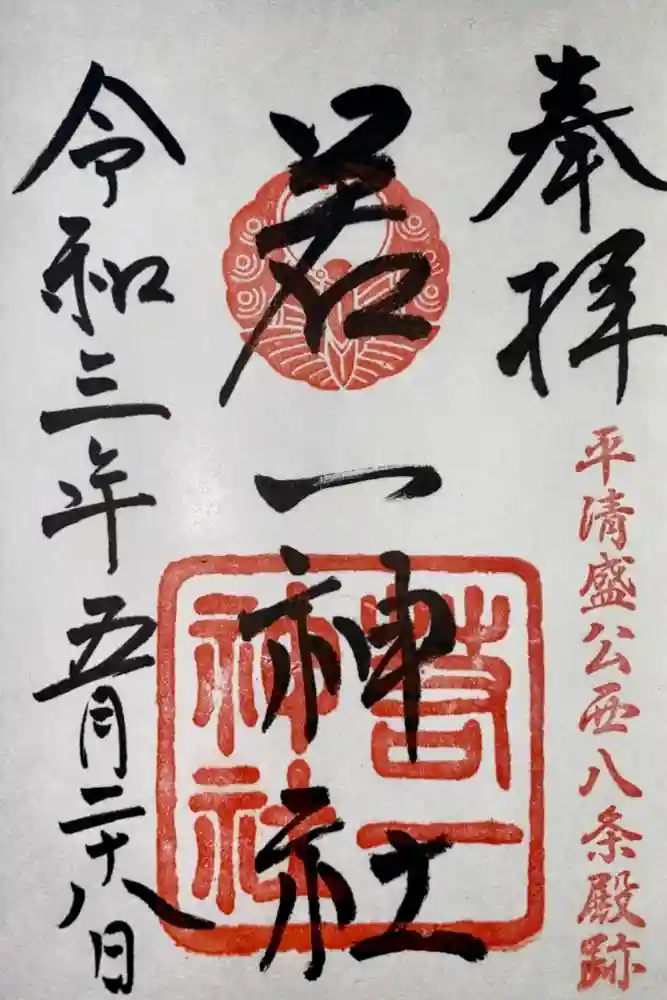 奉拝
平清盛公西八条殿跡
若一神社
若一神社
令和三年五月二十八日